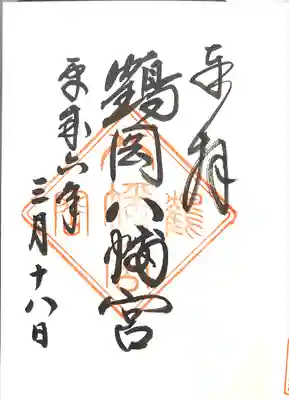 奉拝
鶴岡八幡宮
平成六年
三月十八日